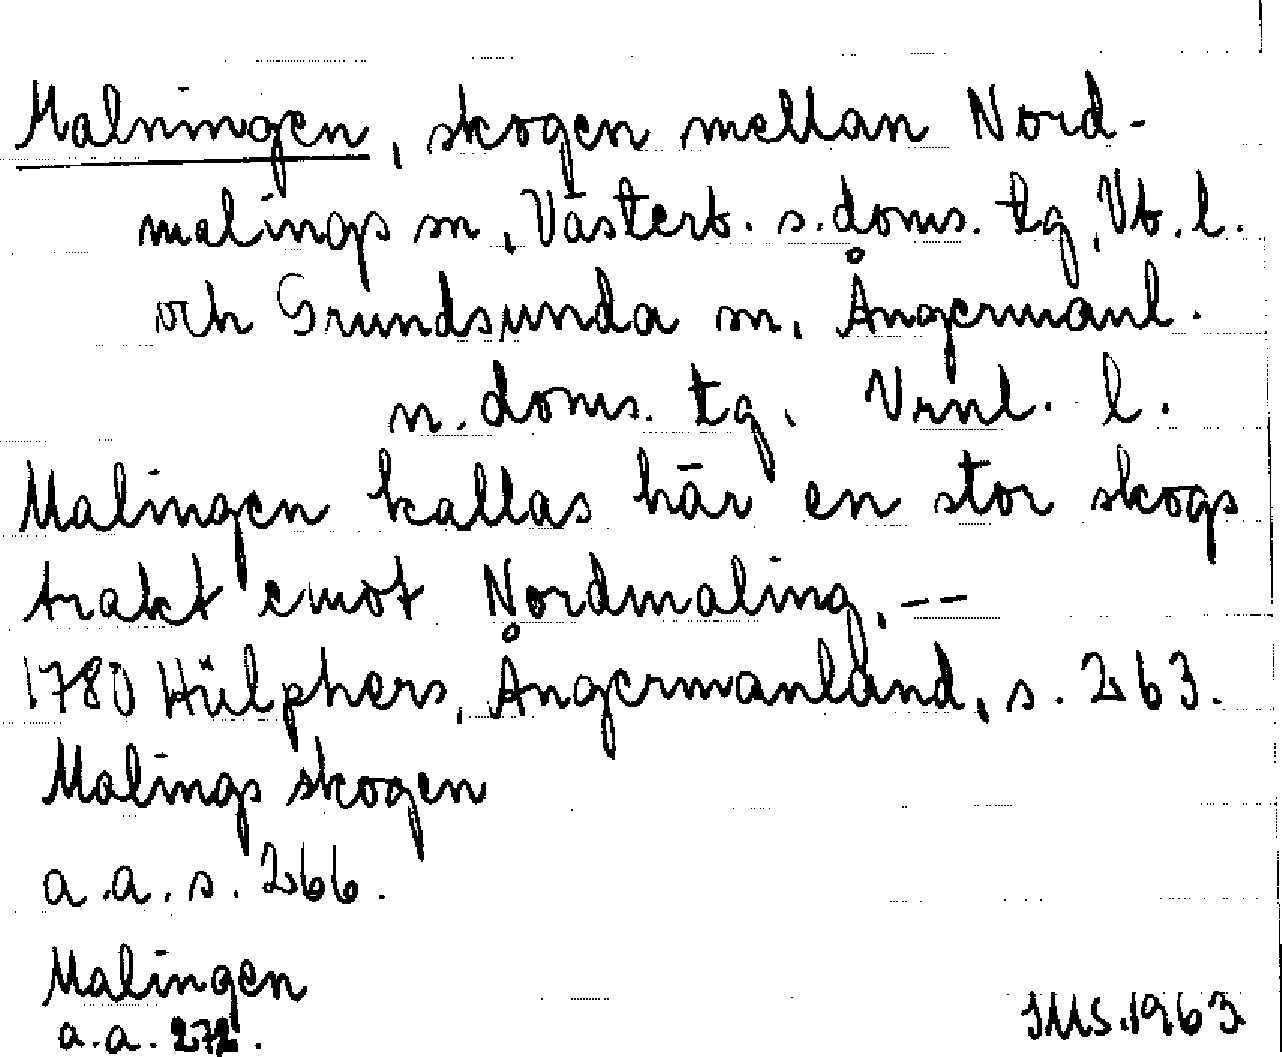 Malningen, skogen mellan Nord-
malings sn, Västerb. s. doms. tg, Vb. l.
och Grundsunda sn, Ångermanl.
n. doms. tg, Vrnl. l.
Malingen kallas här en stor skogs
trakt emot Nordmaling, --
1780 Hülphers, Ångermanland, s. 263.
Malings skogen
a.a. s. 266.
Malingen
a.a. 272.
JMS. 1963